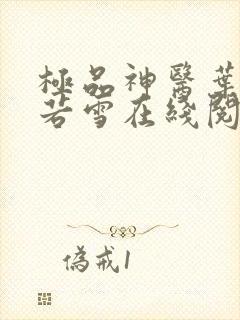 極品神醫葉
若雪在綫閱
偽戒1